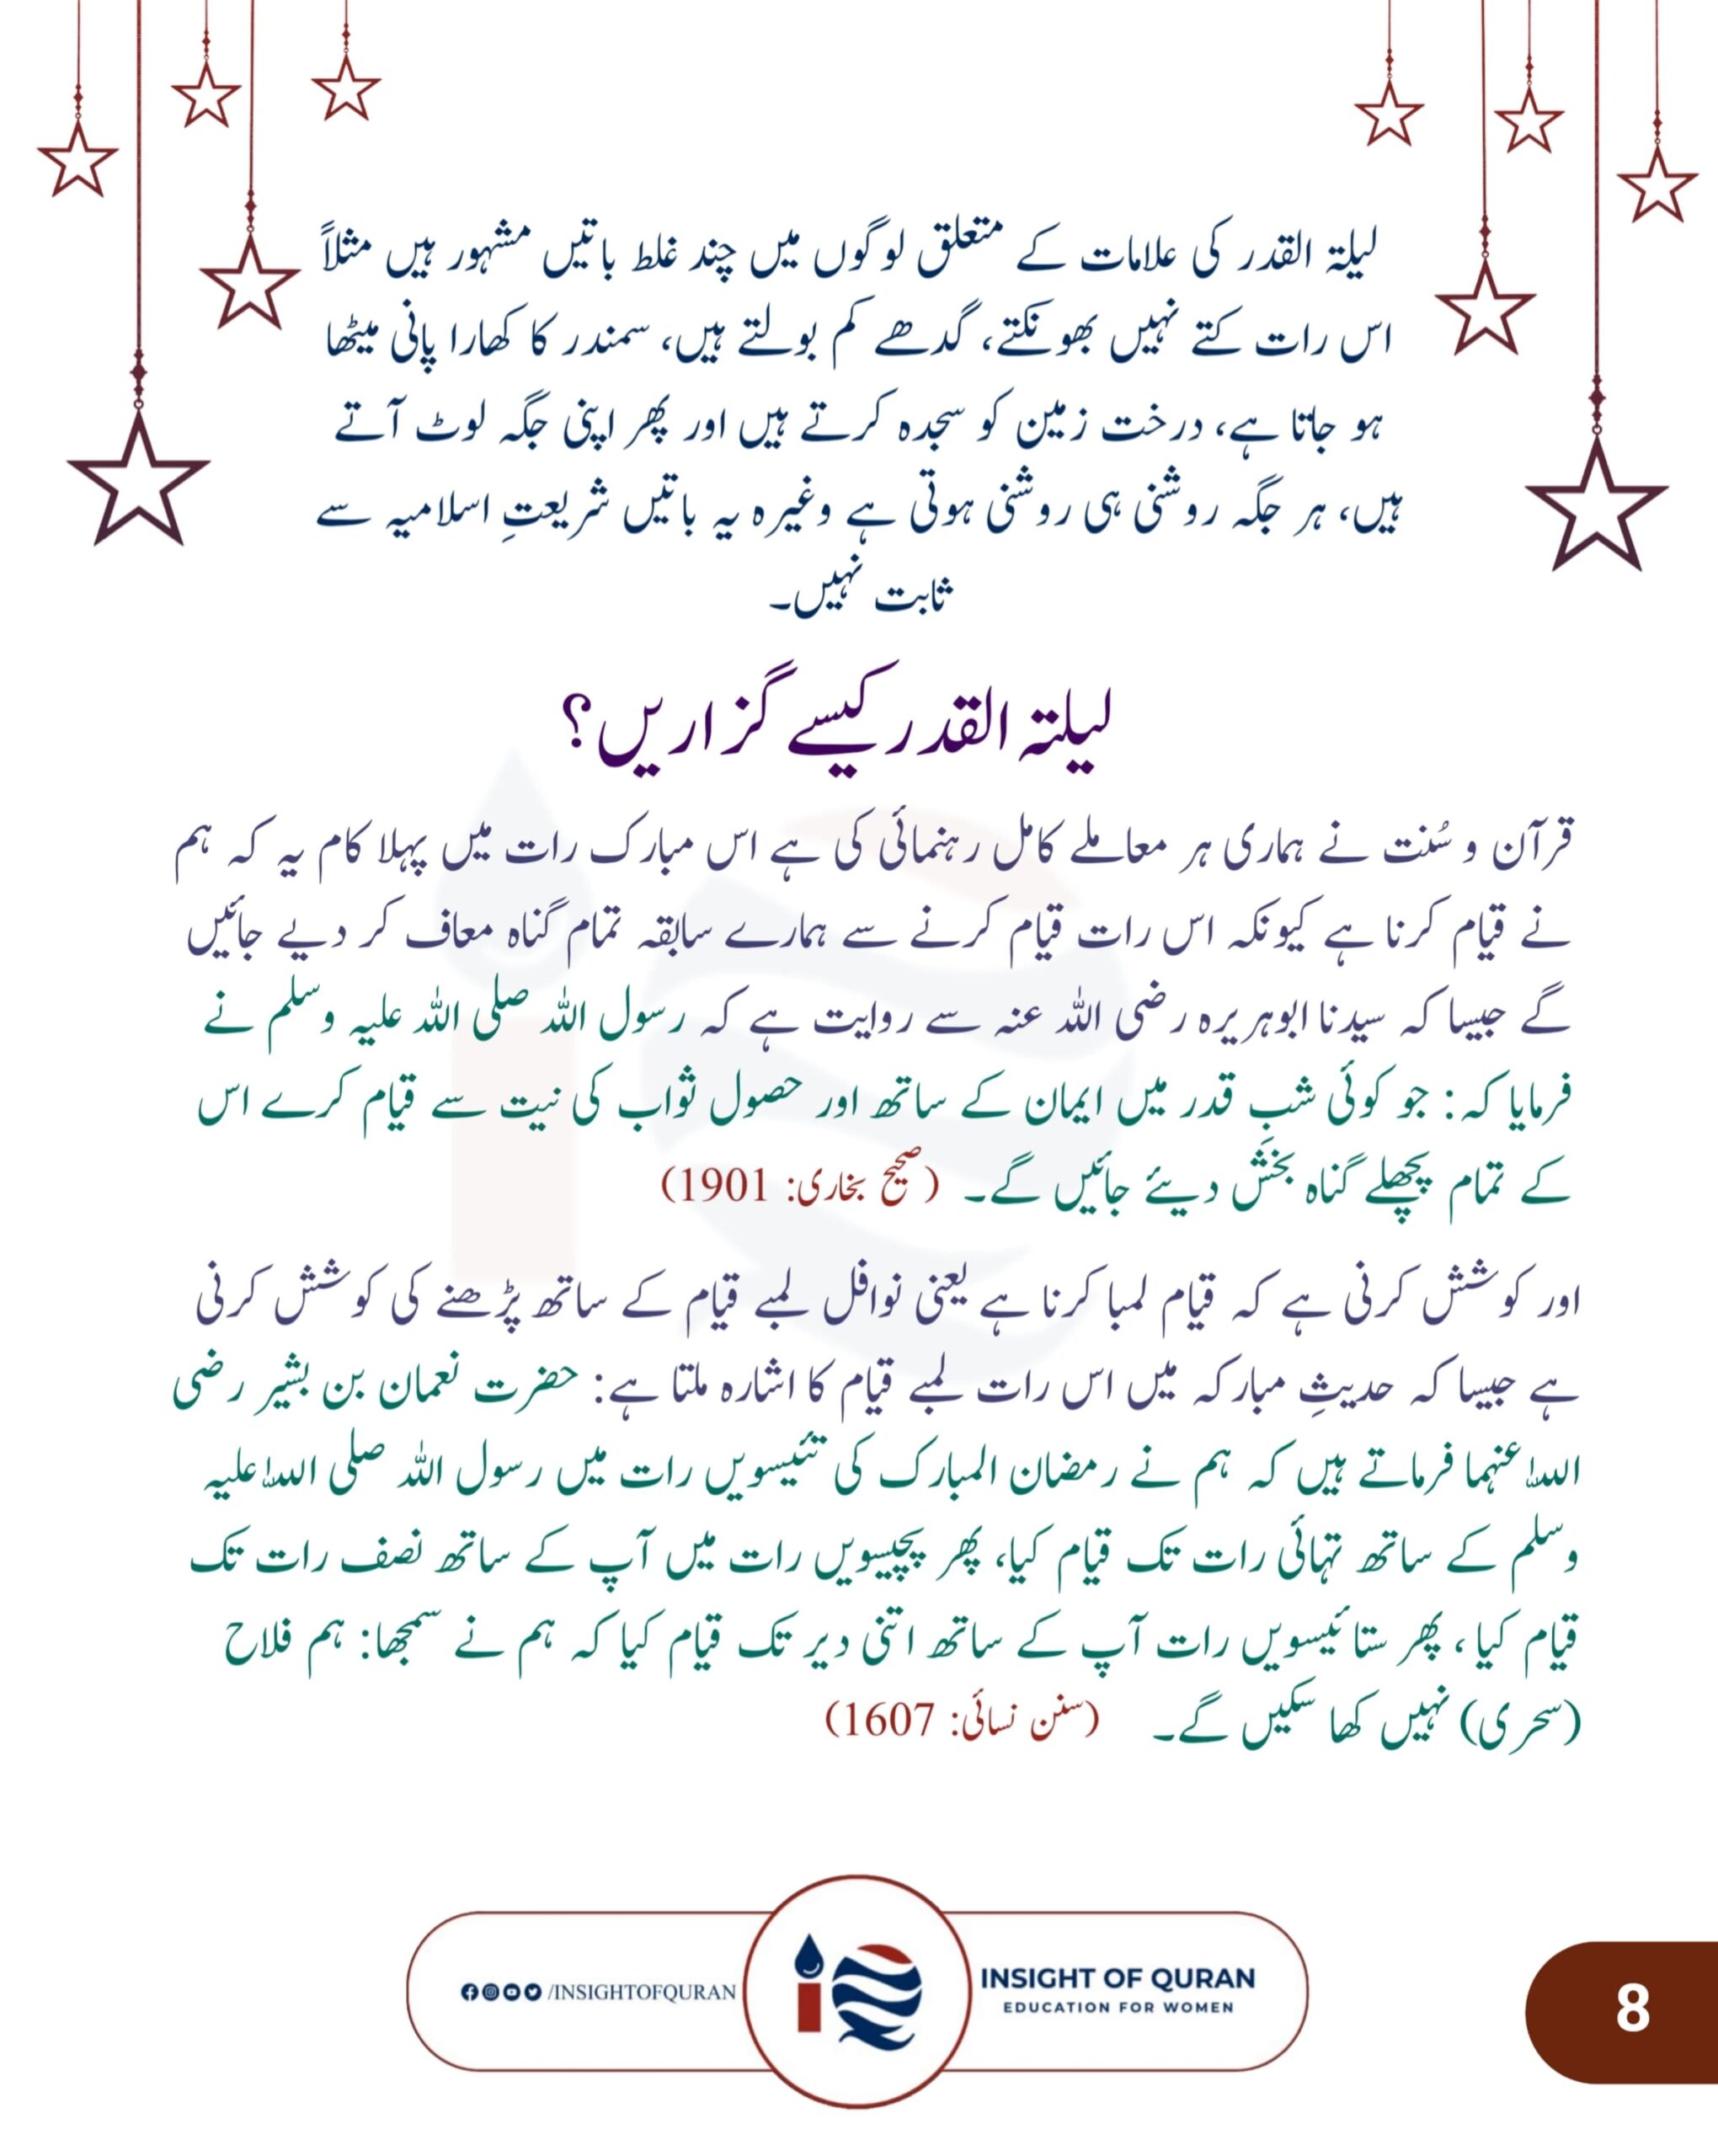 لیلۃ القدر کی علامات کے متعلق لوگوں میں چند غلط باتیں مشہور ہیں مثلاً
اس رات کتے نہیں بھونکتے، گدھے کم بولتے ہیں، سمندر کا کھارا پانی میٹھا
ہو جاتا ہے، درخت زمین کو سجدہ کرتے ہیں اور پھر اپنی جگہ لوٹ آتے
ہیں، ہر جگہ روشنی ہی روشنی ہوتی ہے وغیرہ یہ باتیں شریعتِ اسلامیہ سے
ثابت نہیں۔
لیلتہ القدر کیسے گزاریں؟
قرآن و سُنت نے ہماری ہر معاملے کامل رہنمائی کی ہے اس مبارک رات میں پہلا کام یہ کہ ہم
نے قیام کرنا ہے کیونکہ اس رات قیام کرنے سے ہمارے سابقہ تمام گناہ معاف کر دیے جائیں
گے جیسا کہ سیدنا ابوہریرہ رضی اللہ عنہ سے روایت ہے کہ رسول اللہ صلی اللہ علیہ وسلم نے
فرمایا کہ: جو کوئی شبِ قدر میں ایمان کے ساتھ اور حصول ثواب کی نیت سے قیام کرے اس
کے تمام پچھلے گناہ بخَش دیئے جائیں گے۔ (صحیح بخاری: 1901)
اور کوشش کرنی ہے کہ قیام لمبا کرنا ہے یعنی نوافل لمبے قیام کے ساتھ پڑھنے کی کوشش کرنی
ہے جیسا کہ حدیثِ مبارکہ میں اس رات لمبے قیام کا اشارہ ملتا ہے: حضرت نعمان بن بشیر رضی
اللہ عنہما فرماتے ہیں کہ ہم نے رمضان المبارک کی تئیسویں رات میں رسول اللہ صلی اللہ علیہ
وسلم کے ساتھ تہائی رات تک قیام کیا، پھر پچیسویں رات میں آپ کے ساتھ نصف رات تک
قیام کیا، پھر ستائیسویں رات آپ کے ساتھ اتنی دیر تک قیام کیا کہ ہم نے سمجھا: ہم فلاح
(سحری) نہیں کھا سکیں گے۔ (سنن نسائی: 1607)
/INSIGHTOFQURAN
INSIGHT OF QURAN
EDUCATION FOR WOMEN
8